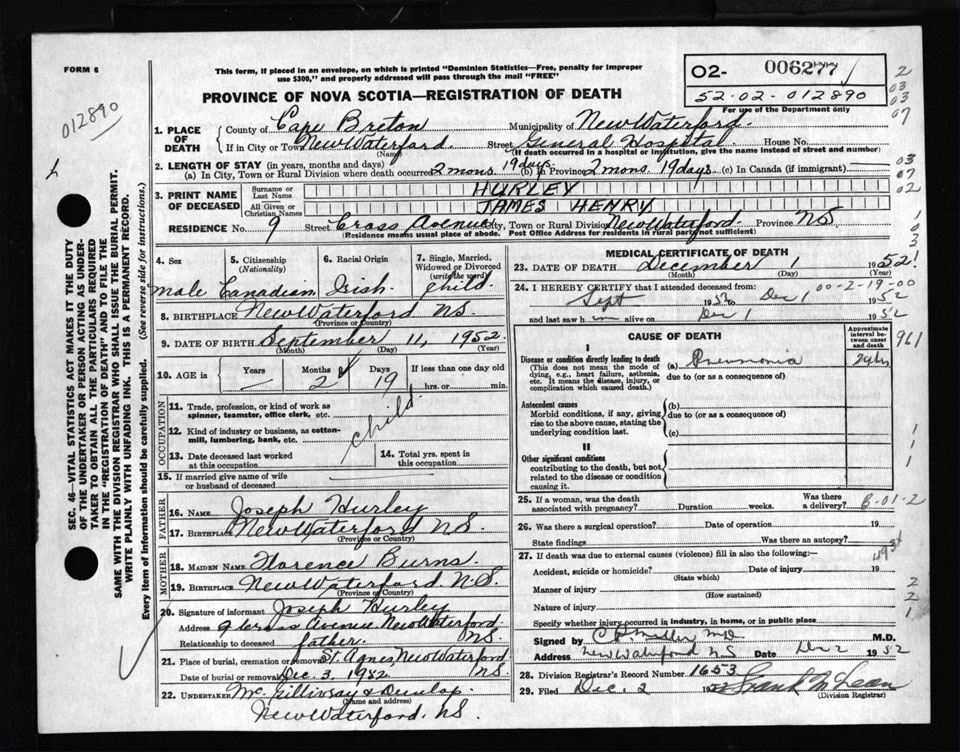 FORM 6
This form, if placed in an envelope, on which is printed "Dominion Statistics—Free, penalty for improper
use $300," and properly addressed will pass through the mail "FREE"
PROVINCE OF NOVA SCOTIA—REGISTRATION OF DEATH
O2- 006277
52-02-012890
For use of the Department only
012890
1. PLACE OF DEATH
County of Cape Breton Municipality of New Waterford
If in City or Town New Waterford. Street General Hospital. House No.
(Name) (If death occurred in a hospital or institution, give the name instead of street and number)
2. LENGTH OF STAY (in years, months and days)
(a) In City, Town or Rural Division where death occurred 2 mons. 19 days. (b) In Province 2 mons. 19 days (c) In Canada (if immigrant)
3. PRINT NAME OF DECEASED
Surname or Last Name HURLEY
All Given or Christian Names JAMES HENRY
RESIDENCE No. 9 Street Cross Avenue City, Town or Rural Division New Waterford Province NS
(Residence means usual place of abode. Post Office Address for residents in rural parts not sufficient)
4. Sex male
5. Citizenship (Nationality) Canadian
6. Racial Origin Irish
7. Single, Married, Widowed or Divorced (write the word) child.
8. BIRTHPLACE New Waterford NS.
(Province or Country)
9. DATE OF BIRTH September 11, 1952
(Month) (Day) (Year)
10. AGE in Years — Months 2 Days 19 If less than one day old
hrs. or min.
OCCUPATION
11. Trade, profession, or kind of work as
spinner, teamster, office clerk, etc.
12. Kind of industry or business, as cotton-
mill, lumbering, bank, etc. child.
13. Date deceased last worked
at this occupation
14. Total yrs. spent in
this occupation
15. If married give name of wife
or husband of deceased
FATHER
16. NAME Joseph Hurley
17. BIRTHPLACE New Waterford NS.
(Province or Country)
MOTHER
18. MAIDEN NAME Florence Burns
19. BIRTHPLACE New Waterford N.S.
(Province or Country)
20. Signature of informant Joseph Hurley
Address 9 Cross Avenue New Waterford NS
Relationship to deceased father.
21. Place of burial, cremation or removal St. Agnes New Waterford NS.
Date of burial or removal Dec. 3, 1952
22. UNDERTAKER McGillivray & Dunlap.
(Name and address)
New Waterford, NS.
MEDICAL CERTIFICATE OF DEATH
23. DATE OF DEATH December 1 1952
(Month) (Day) (Year)
24. I HEREBY CERTIFY that I attended deceased from: 00-2-19-00
Sept 1952 to Dec 1 1952
and last saw him alive on Dec 1 1952
CAUSE OF DEATH
Approximate interval between onset and death
I
Disease or condition directly leading to death
(This does not mean the mode of
dying, e.g., heart failure, asthenia,
etc. It means the disease, injury, or
complication which caused death.)
(a) Pneumonia 24 hrs
due to (or as a consequence of)
Antecedent causes
Morbid conditions, if any, giving
rise to the above cause, stating the
underlying condition last.
(b)
due to (or as a consequence of)
(c)
II
Other significant conditions
contributing to the death, but not
related to the disease or condition
causing it.
25. If a woman, was the death
associated with pregnancy? Duration weeks. Was there a delivery? B-01-2
26. Was there a surgical operation? Date of operation 19
State findings Was there an autopsy?
27. If death was due to external causes (violence) fill in also the following:—
Accident, suicide or homicide? Date of injury 19
(State which)
Manner of injury
(How sustained)
Nature of injury
Specify whether injury occurred in industry, in home, or in public place
Signed by M.D.
Address New Waterford NS Date Dec 2 1952
28. Division Registrar's Record Number 1653
29. Filed Dec. 2 Frank McLean
(Division Registrar)
SEC. 46—VITAL STATISTICS ACT MAKES IT THE DUTY
OF THE UNDERTAKER OR PERSON ACTING AS UNDER-
TAKER TO OBTAIN ALL THE PARTICULARS REQUIRED
IN THE "REGISTRATION OF DEATH" AND TO FILE THE
SAME WITH THE DIVISION REGISTRAR WHO SHALL ISSUE THE BURIAL PERMIT.
WRITE PLAINLY WITH UNFADING INK. THIS IS A PERMANENT RECORD.
Every item of information should be carefully supplied. (See reverse side for instructions.)
2
03
03
07
03
07
02
961
1
1
1
2
2
1